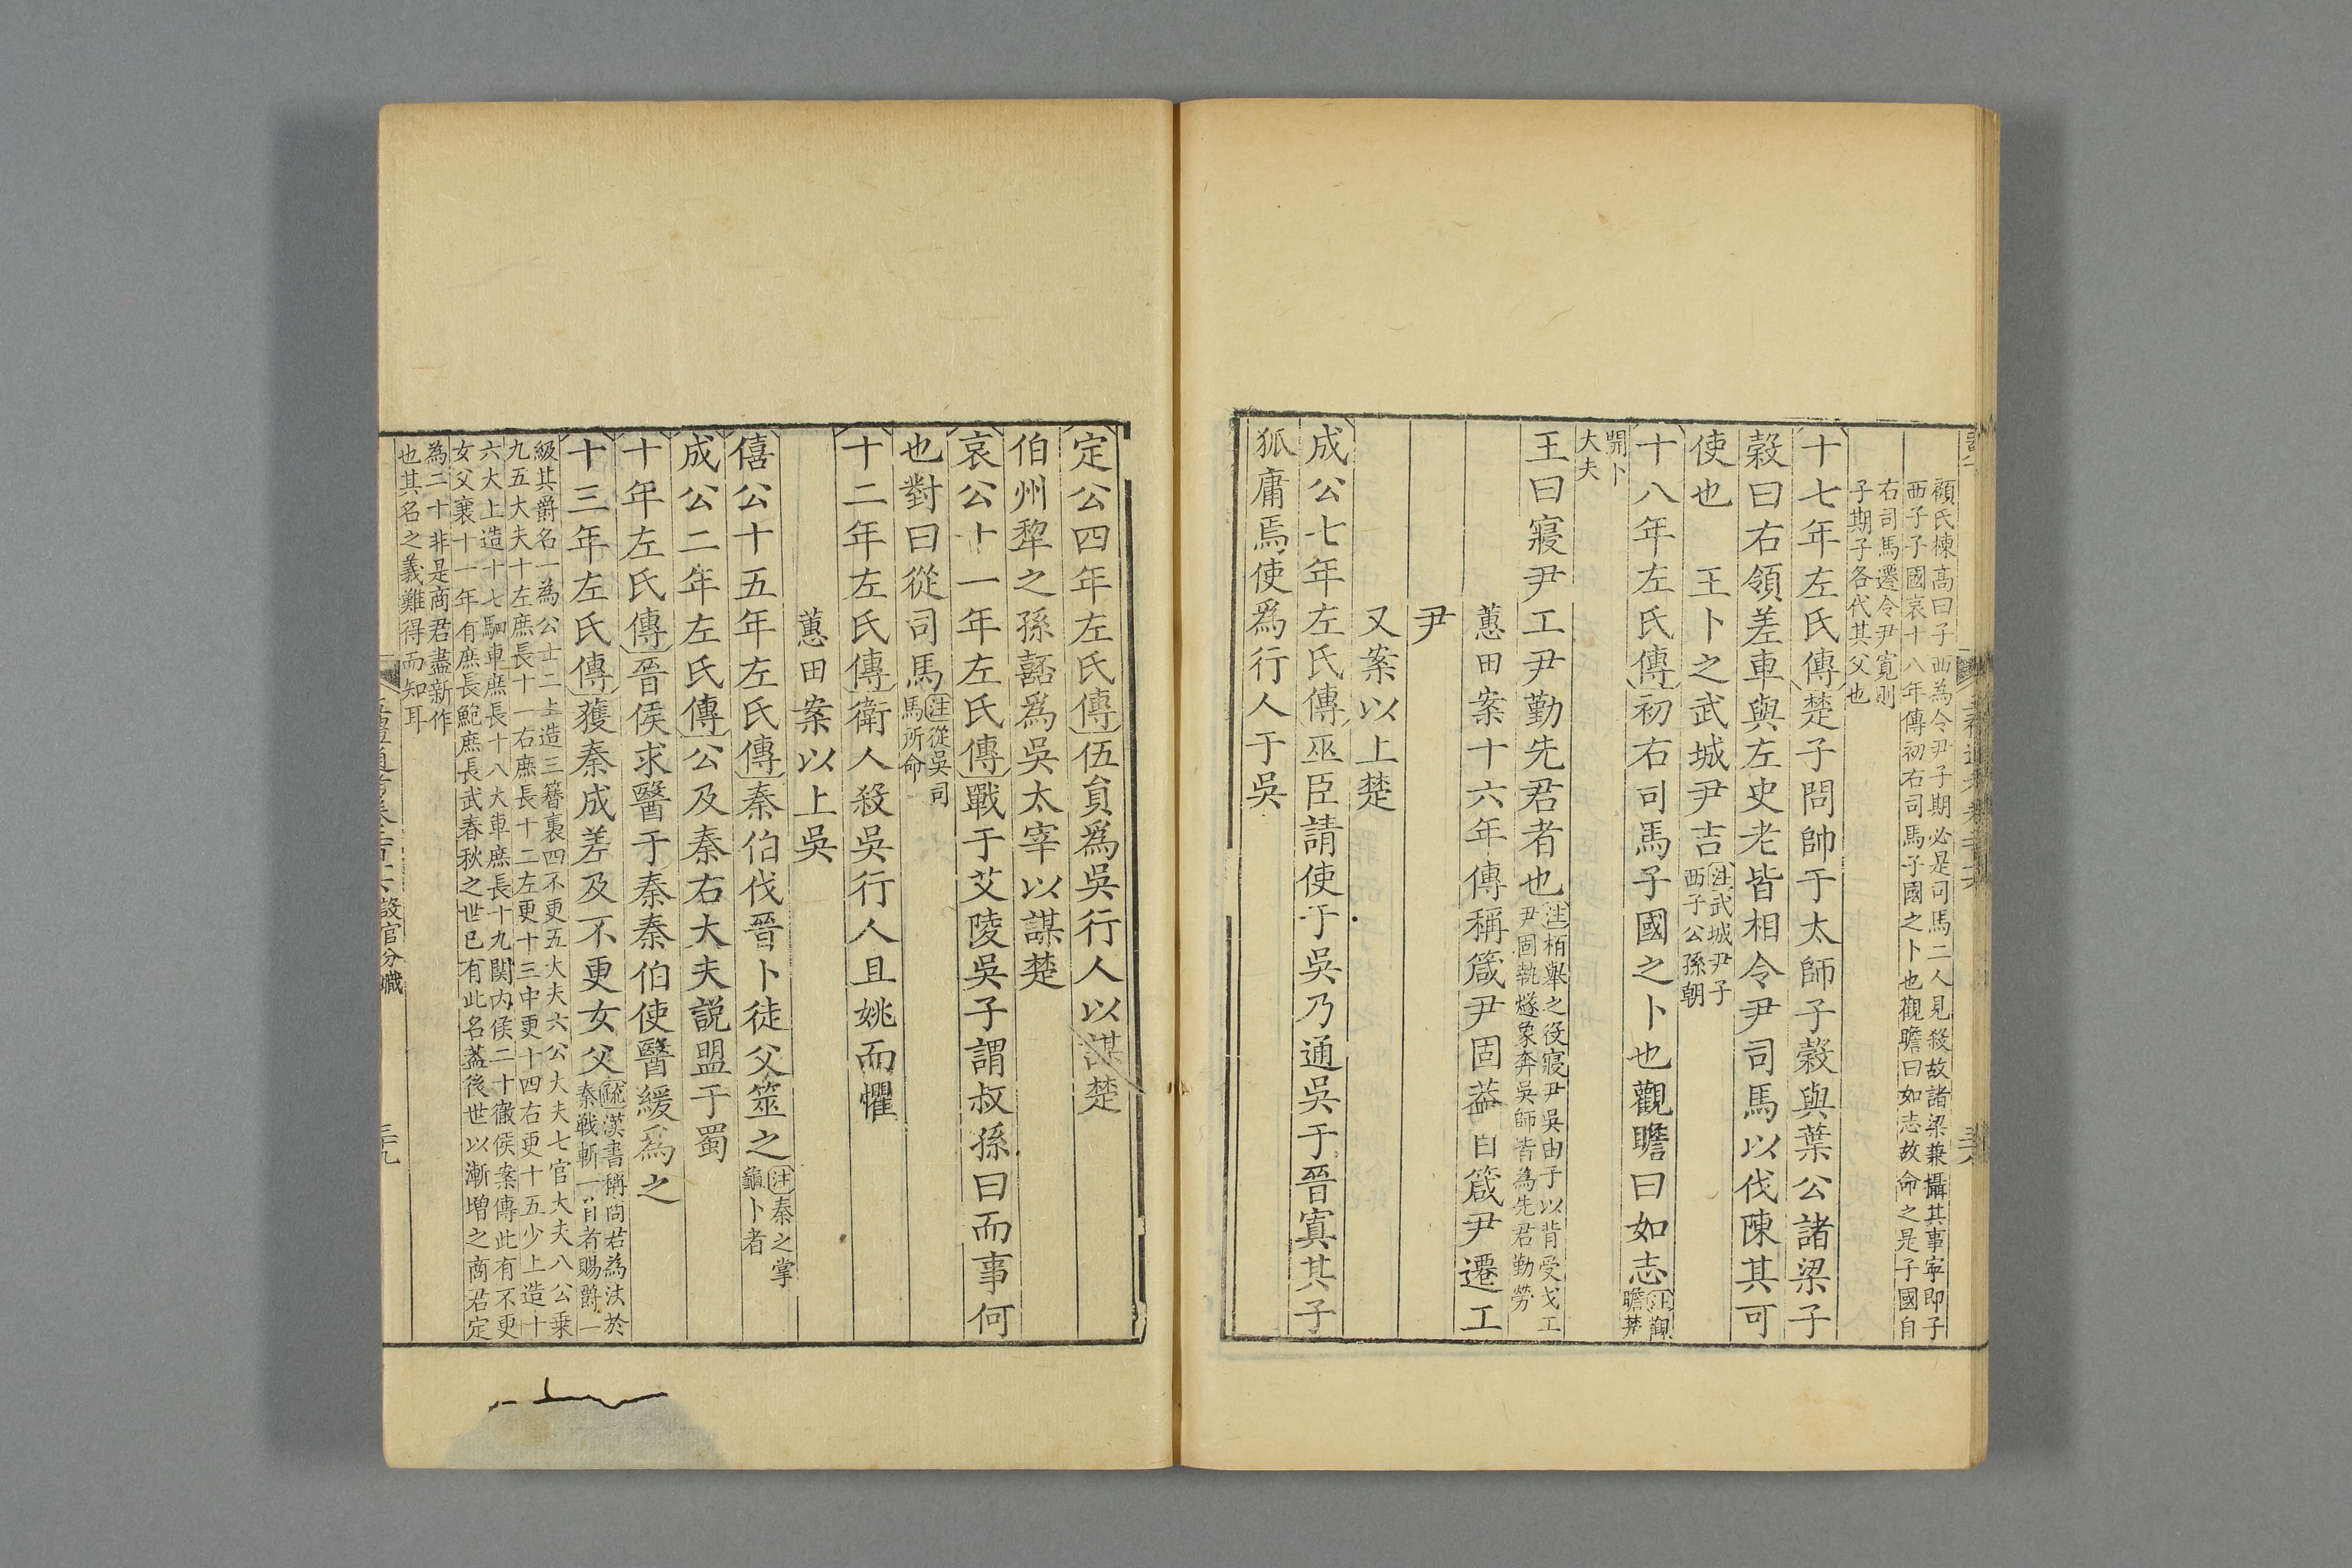 顧氏棟高曰子西為令尹子期必是司馬二人見殺故諸梁兼攝其事寧即子
西子子國哀十八年傳初右司馬子國之卜也觀瞻曰如志故命之是子國自
右司馬遷令尹寬則
子期子各代其父也
十七年左氏傳楚子問帥于太師子穀與葉公諸梁子
穀曰右領差車與左史老皆相令尹司馬以伐陳其可
使也　王卜之武城尹吉注武城尹子
西子公孫朝
十八年左氏傳初右司馬子國之卜也觀瞻曰如志注觀
瞻楚
開卜
大夫
王曰寢尹工尹勤先君者也注栢舉之役寢尹吳由于以背受戈工
尹固執燧象奔吳師皆為先君勤勞
蕙田案十六年傳稱箴尹固葢自箴尹遷工
尹
又案以上楚
成公七年左氏傳巫臣請使于吳乃通吳于晉寘其子
狐庸焉使為行人于吳
定公四年左氏傳伍員為吳行人以謀楚
伯州犂之孫嚭為吳太宰以謀楚
哀公十一年左氏傳戰于艾陵吳子謂叔孫曰而事何
也對曰從司馬注從吳司
馬所命
十二年左氏傳衛人殺吳行人且姚而懼
蕙田案以上吳
僖公十五年左氏傳秦伯伐晉卜徒父筮之注秦之掌
龜卜者
成公二年左氏傳公及秦右大夫說盟于蜀
十年左氏傳晉侯求醫于秦秦伯使醫緩為之
十三年左氏傳獲秦成差及不更女父疏漢書稱商君為法於
秦戰斬一首者賜爵一
級其爵名一為公士二上造三簪裊四不更五大夫六公大夫七官大夫八公乗
九五大夫十左庶長十一右庶長十二左更十三中更十四右更十五少上造十
六大上造十七駟車庶長十八大車庶長十九關內侯二十徹侯案傳此有不更
女父襄十一年有庶長鮑庶長武春秋之世已有此名葢後世以漸增之商君定
為二十非是商君盡新作
也其名之義難得而知耳
設官分職